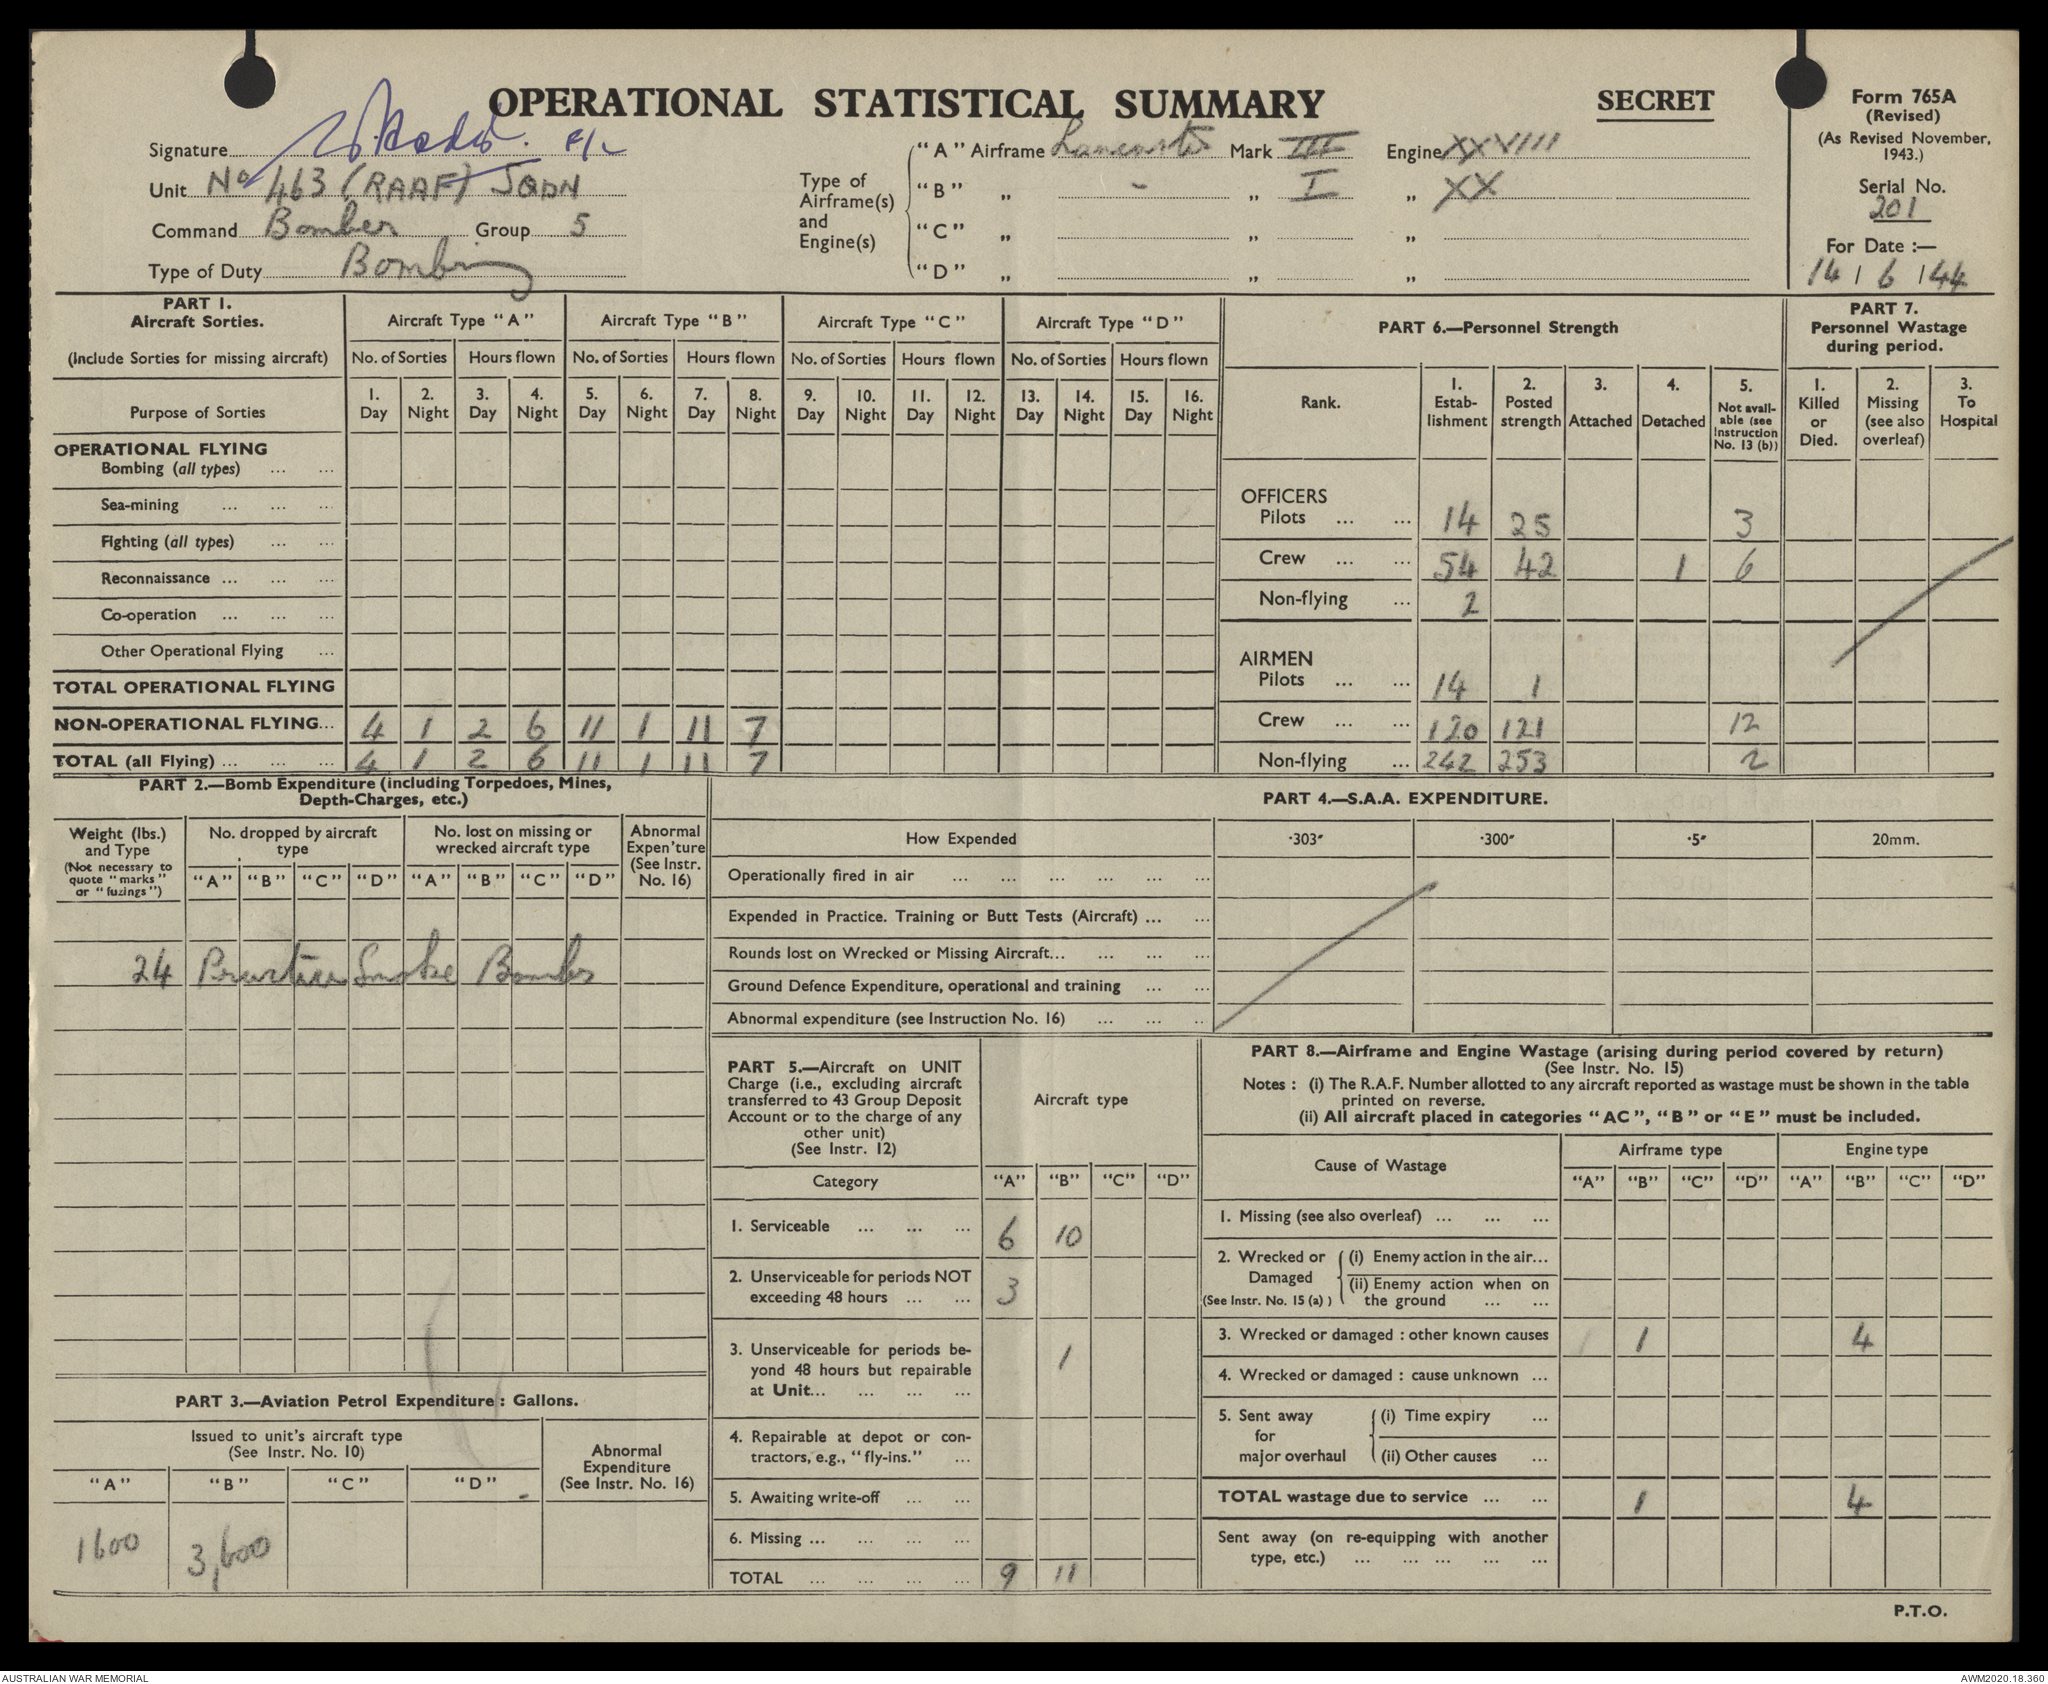 OPERATIONAL STATISTICAL SUMMARY
SECRET
Form 765A
(Revised)
(As Revised November,
1943.)
Serial No.
201
For Date :—
14 / 6 / 44
Signature F/L
Unit No 463 (RAAF) SQDN
Command Bomber Group 5
Type of Duty Bombing
Type of
Airframe(s)
and
Engine(s)
"A" Airframe Lancaster Mark III Engine XXVIII
"B" „ - „ I „ XX
"C" „ „ „
"D" „ „ „
PART 1.
Aircraft Sorties.
(Include Sorties for missing aircraft)
Aircraft Type "A" Aircraft Type "B" Aircraft Type "C" Aircraft Type "D"
No. of Sorties Hours flown No. of Sorties Hours flown No. of Sorties Hours flown No. of Sorties Hours flown
Purpose of Sorties
1. 2. 3. 4. 5. 6. 7. 8. 9. 10. 11. 12. 13. 14. 15. 16.
Day Night Day Night Day Night Day Night Day Night Day Night Day Night Day Night
OPERATIONAL FLYING
Bombing (all types) ... ...
Sea-mining ... ... ...
Fighting (all types) ... ...
Reconnaissance ... ... ...
Co-operation ... ... ...
Other Operational Flying ...
TOTAL OPERATIONAL FLYING
NON-OPERATIONAL FLYING... 4 1 2 6 11 1 11 7
TOTAL (all Flying) ... ... ... 4 1 2 6 11 1 11 7
PART 6.—Personnel Strength
Rank.
1. Estab-lishment
2. Posted strength
3. Attached
4. Detached
5. Not avail-able (see Instruction No. 13 (b))
OFFICERS
Pilots ... ... 14 25 3
Crew ... ... 54 42 1 6
Non-flying ... 2
AIRMEN
Pilots ... ... 14 1
Crew ... ... 120 121 12
Non-flying ... 242 253 2
PART 7.
Personnel Wastage
during period.
1. Killed or Died.
2. Missing (see also overleaf)
3. To Hospital
PART 2.—Bomb Expenditure (including Torpedoes, Mines,
Depth-Charges, etc.)
Weight (lbs.)
and Type
(Not necessary to
quote "marks"
or "fuzings")
No. dropped by aircraft
type
No. lost on missing or
wrecked aircraft type
Abnormal
Expen'ture
(See Instr.
No. 16)
"A" "B" "C" "D" "A" "B" "C" "D"
24 Practice Smoke Bombs
PART 3.—Aviation Petrol Expenditure : Gallons.
Issued to unit's aircraft type
(See Instr. No. 10)
Abnormal
Expenditure
(See Instr. No. 16)
"A" "B" "C" "D"
1600 3,600
PART 4.—S.A.A. EXPENDITURE.
How Expended ·303″ ·300″ ·5″ 20mm.
Operationally fired in air ... ... ... ... ... ...
Expended in Practice. Training or Butt Tests (Aircraft) ... ...
Rounds lost on Wrecked or Missing Aircraft... ... ... ...
Ground Defence Expenditure, operational and training ... ...
Abnormal expenditure (see Instruction No. 16) ... ... ..
PART 5.—Aircraft on UNIT
Charge (i.e., excluding aircraft
transferred to 43 Group Deposit
Account or to the charge of any
other unit)
(See Instr. 12)
Aircraft type
Category "A" "B" "C" "D"
1. Serviceable ... ... ... 6 10
2. Unserviceable for periods NOT
exceeding 48 hours ... ... 3
3. Unserviceable for periods be-
yond 48 hours but repairable
at Unit... ... ... ... 1
4. Repairable at depot or con-
tractors, e.g., "fly-ins." ...
5. Awaiting write-off ... ...
6. Missing ... ... ... ...
TOTAL ... ... ... ... 9 11
PART 8.—Airframe and Engine Wastage (arising during period covered by return)
(See Instr. No. 15)
Notes : (i) The R.A.F. Number allotted to any aircraft reported as wastage must be shown in the table
printed on reverse.
(ii) All aircraft placed in categories "AC", "B" or "E" must be included.
Cause of Wastage Airframe type Engine type
"A" "B" "C" "D" "A" "B" "C" "D"
1. Missing (see also overleaf) ... ... ...
2. Wrecked or Damaged (See Instr. No. 15 (a) )
(i) Enemy action in the air...
(ii) Enemy action when on
the ground ... ...
3. Wrecked or damaged : other known causes 1 4
4. Wrecked or damaged : cause unknown ...
5. Sent away for major overhaul
(i) Time expiry ...
(ii) Other causes ...
TOTAL wastage due to service ... ... 1 4
Sent away (on re-equipping with another
type, etc.) ... ... ... ... ...
P.T.O.
AUSTRALIAN WAR MEMORIAL
AWM2020.18.360